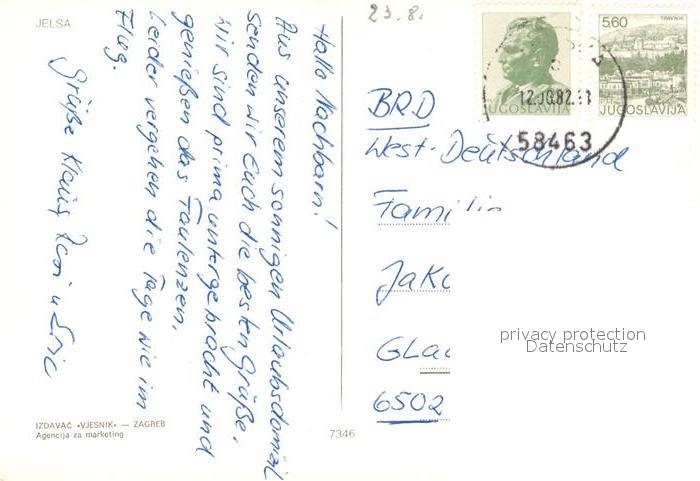 JELSA
23.8.
Hallo Nachbarn!
Aus unserem sonnigen Urlaubsdomizil
senden wir Euch die besten Grüße.
Wir sind prima untergebracht und
genießen das Faulenzen.
Leider vergehen die Tage wie im
Flug.
Grüße Klaus, u. Eric
IZDAVAČ «VJESNIK» — ZAGREB
Agencija za marketing
7346
JUGOSLAVIJA
5,60
TRAVNIK
JUGOSLAVIJA
12.08.82.11
58463
BRD
West-Deutschland
Famili
Jak
GLa
6502
privacy protection
Datenschutz